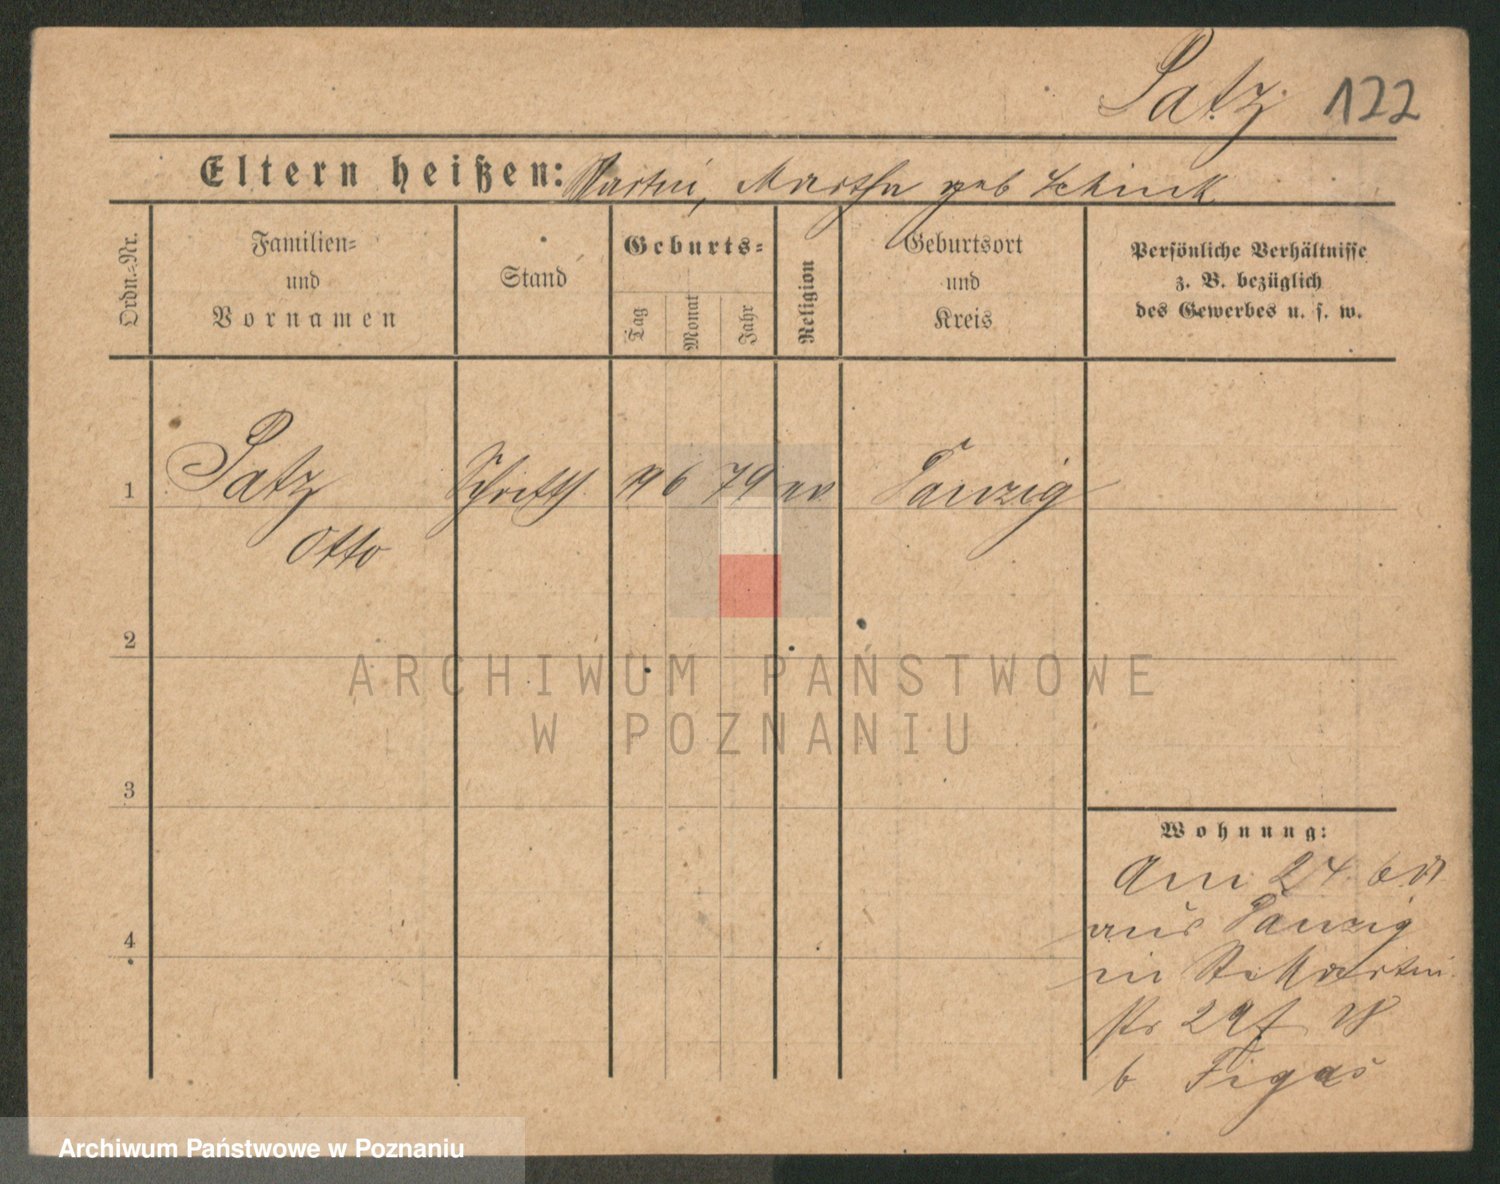 Satz 122
Eltern heißen: Martin, Martha geb Schink
Ordn.=Nr.
Familien=
und
Vornamen
Stand
Geburts=
Tag
Monat
Jahr
Religion
Geburtsort
und
Kreis
Persönliche Verhältnisse
z. B. bezüglich
des Gewerbes u. s. w.
1 Satz 19 6 79 ev Danzig
Otto
2
3
4
Wohnung:
Am 24. 6.
aus Danzig
in St. Martin
str 29
b Figas
ARCHIWUM PAŃSTWOWE
W POZNANIU
Archiwum Państwowe w Poznaniu